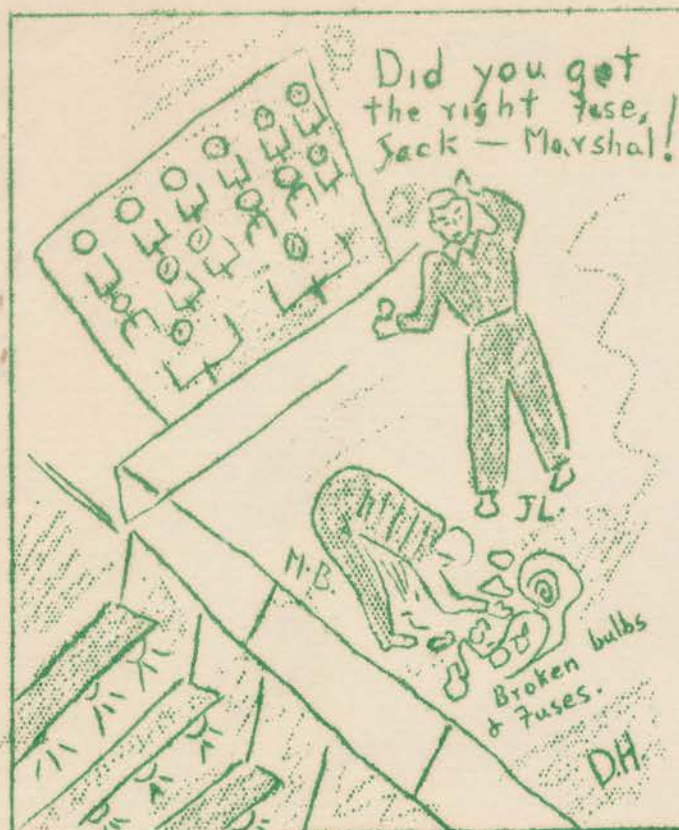 Did you get
the right fuse,
Jack — Marshal!
JL.
M.B.
Broken bulbs
& fuses.
D.H.